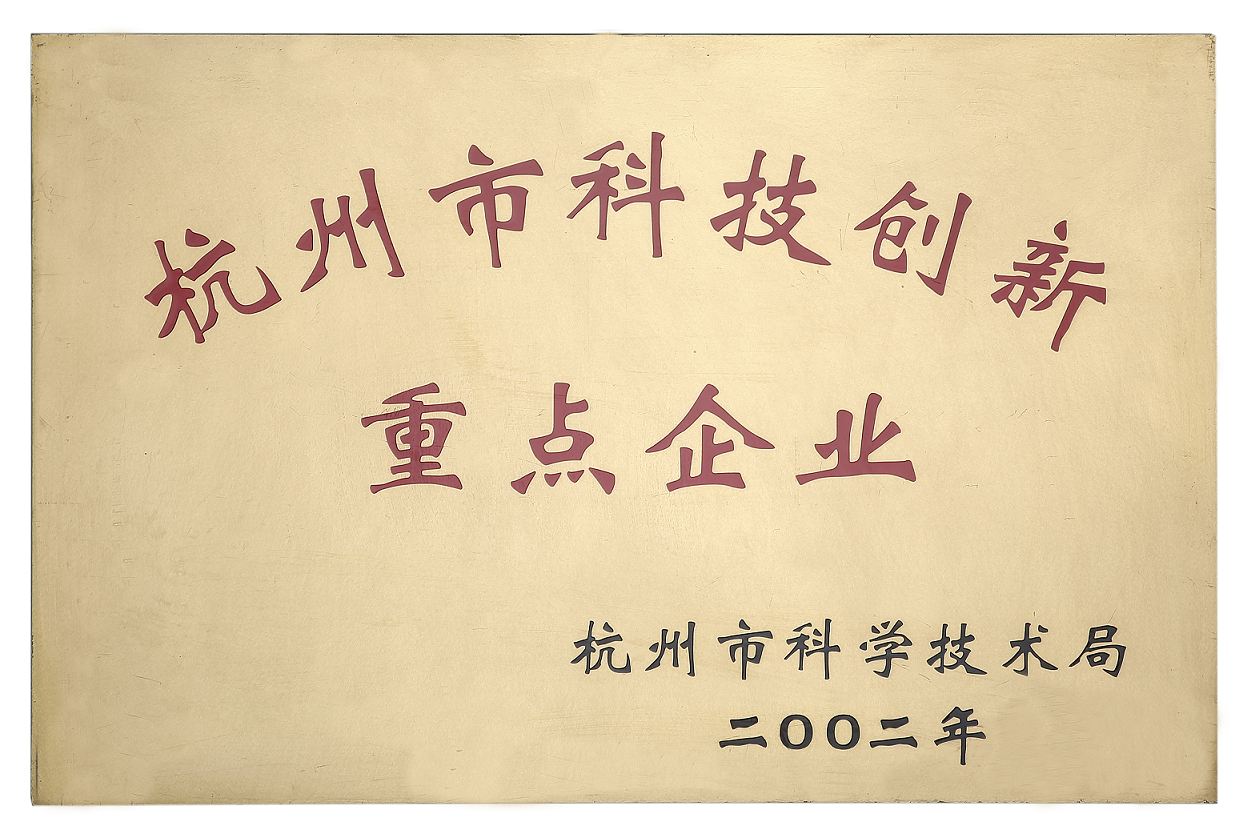 杭州市科技创新
重点企业
杭州市科学技术局
二〇〇二年